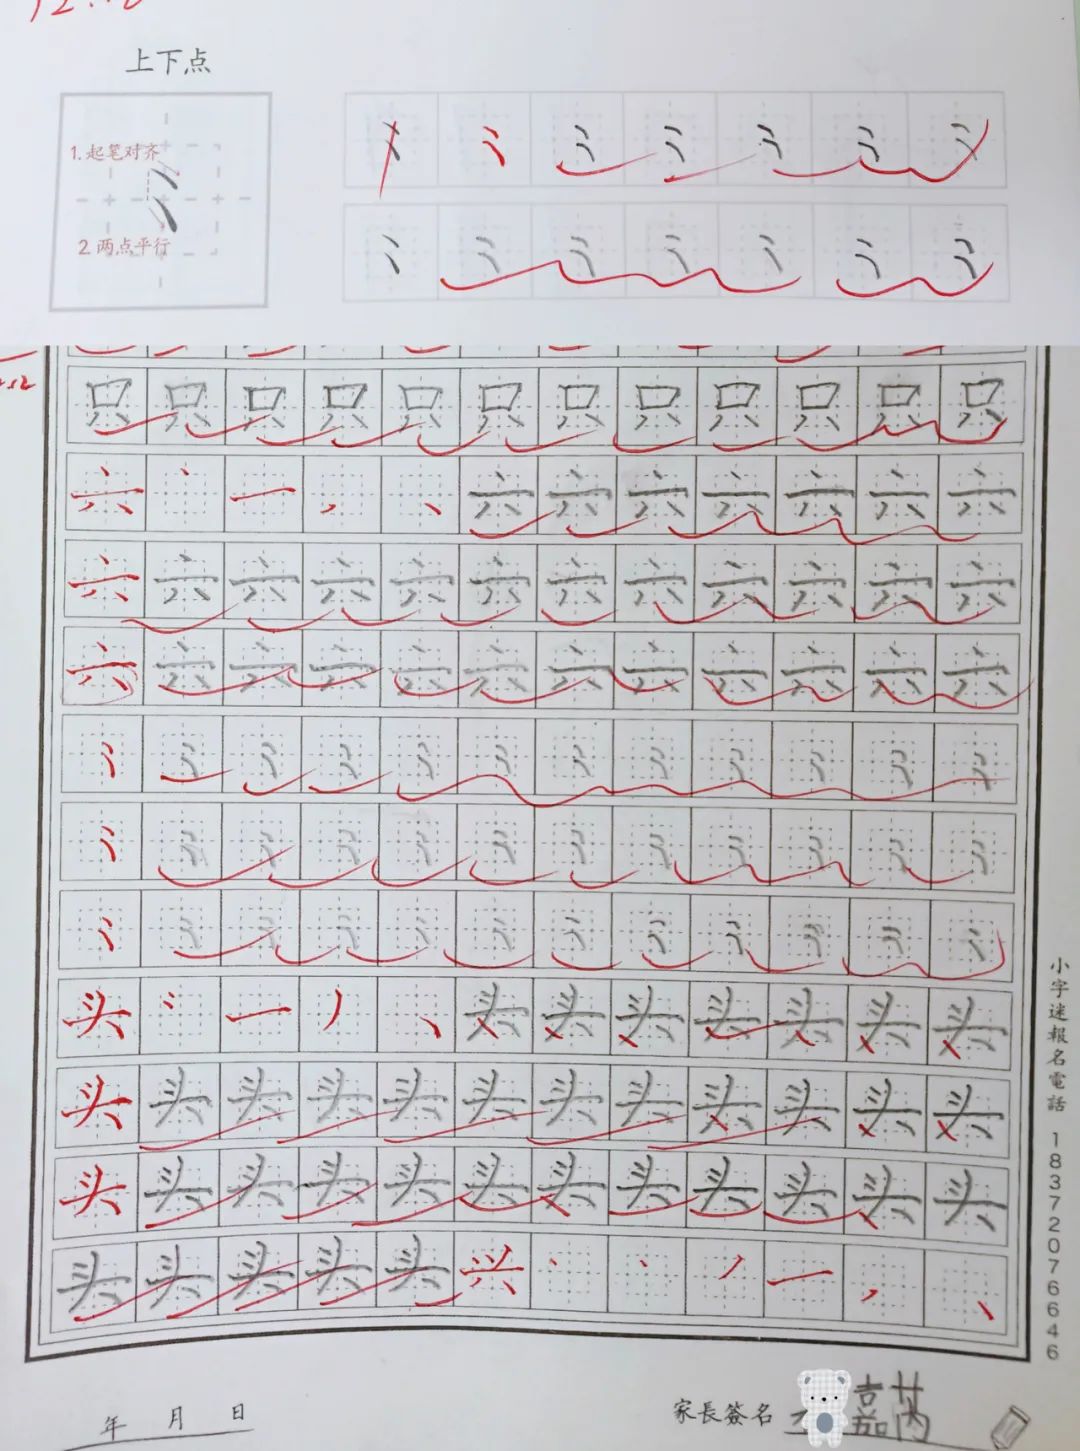 上下点
1.起笔对齐
2.两点平行
只只只只只只只只只只只只
六丶一丶丶六六六六六六六
六六六六六六六六六六六六
六六六六六六六六六六六六
头一丿丶头头头头头头头
头头头头头头头头头头头头
头头头头头头头头头头头头
头头头头头兴丶丶丿一丿丶
小字迷報名電話 18372076646
年 月 日
家長簽名 嘉芮